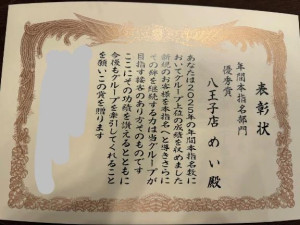 表彰状
年間本指名部門
優秀賞
八王子店 めい殿
あなたは2025年の年間本指名数に
おいてグループ上位の成績を収めました
新規のお客様を本指名へと導きさらに
その絆を継続する力は当グループが
目指す接客のあり方そのものです
ここにその功績を讃えるとともに
今後もグループを牽引してくれること
を願いこの賞を贈ります